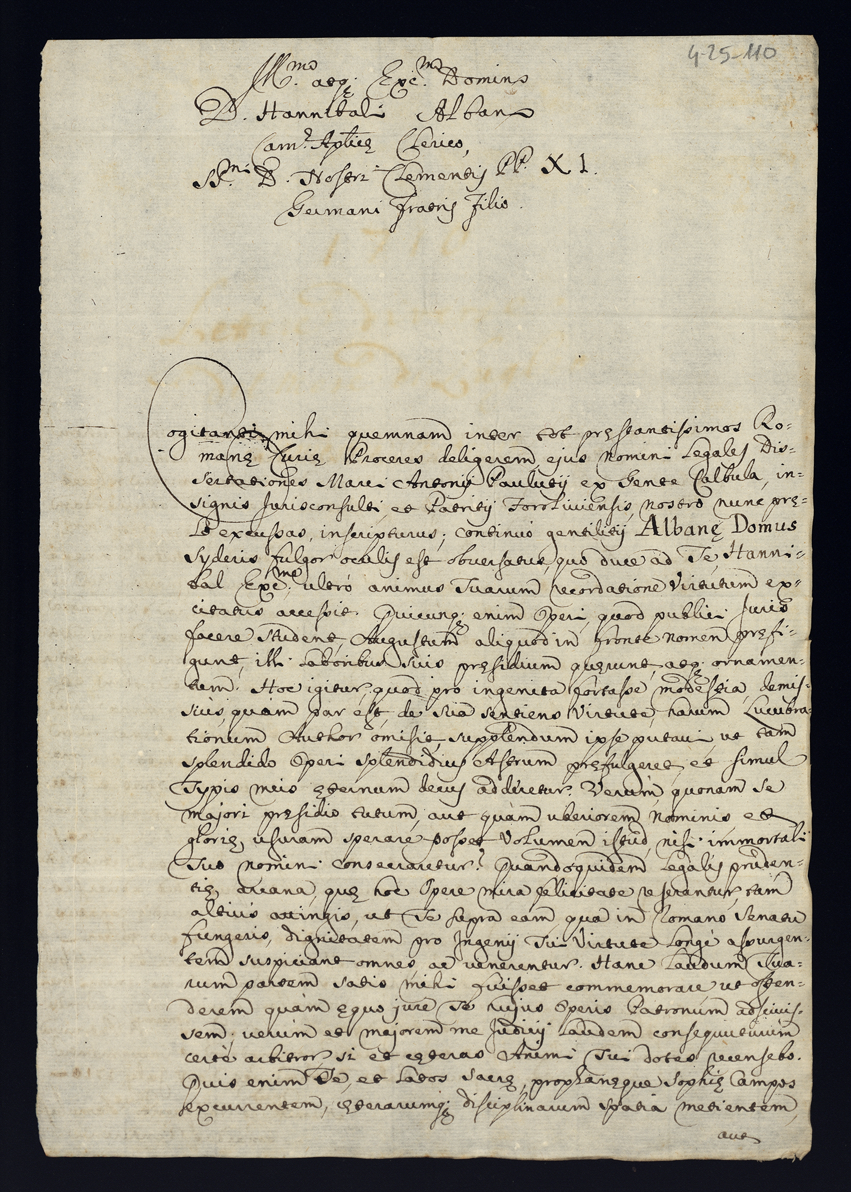 4-25-110
Ill.mo atq; Exc.mo Domino
D. Hannibali Albano
Cam.ę Aplicę Clerico,
SS.mi D. Nostri Clementis PP. XI.
Germani Fratris Filio.
Cogitanti mihi quemnam inter tot pręstantissimos Ro-
manę Curię Proceres deligerem, ejus nomini Legales Dis-
sertationes Marci Antonij Paulutij ex Gente Calbula, in-
signis Jurisconsulti, et Patritij Foroliviensis, nostro nunc prę-
lo excussas, inscripturus; continuò gentilitij Albanę Domus
Syderis fulgor oculis est obversatus, quo duce ad Te, Hanni-
bal Exc.me, ultrò animus Tuarum recordatione Virtutum ex-
citatus accessit. Quicunq; enim Operi, quod publici Juris
facere student, Augustum aliquod in fronte nomen pręfi-
gunt, illi Laboribus suis pręsidium quęrunt, atq; ornamen-
tum. Hoc igitur, quod pro ingenita fortasse modestia, demis-
siùs, quàm par est, de sua sentiens Virtute, harum Lucubra-
tionum Author omisit, supplendum ipse putavi, ut tam
splendido Operi splendidius Astrum pręfulgeret, et simul
Typis meis ęternum decus adderetur. Verùm, quonam se
majori pręsidio tutum, aut quàm uberiorem nominis et
glorię, usuram sperare posset Volumen istud, nisi immortali
Tuo nomini consecraretur? Quandoquidem Legalis pruden-
tię arcana, quę hoc Opere mira felicitate reserantur, tam
altius attingis, ut Te supra eam qua in Romano Senatu
fungeris, dignitatem pro Ingenij Tui Virtute longè assurgen-
tem suspiciant omnes, ac venerentur. Hanc Laudum Tua-
rum partem satis mihi fuisset commemorare ut osten-
derem quàm ęquo jure Te hujus Operis Patronum adscivis-
sem; verùm et majorem me Judicij Laudem consequuturum
certè arbitror, si et cęteras Animi Tui dotes recensebo.
Quis enim Te et Latos Sacrę, prophanęque Sophię Campos
excurrentem, cęterarumq; disciplinarum spatia metientem,
aut